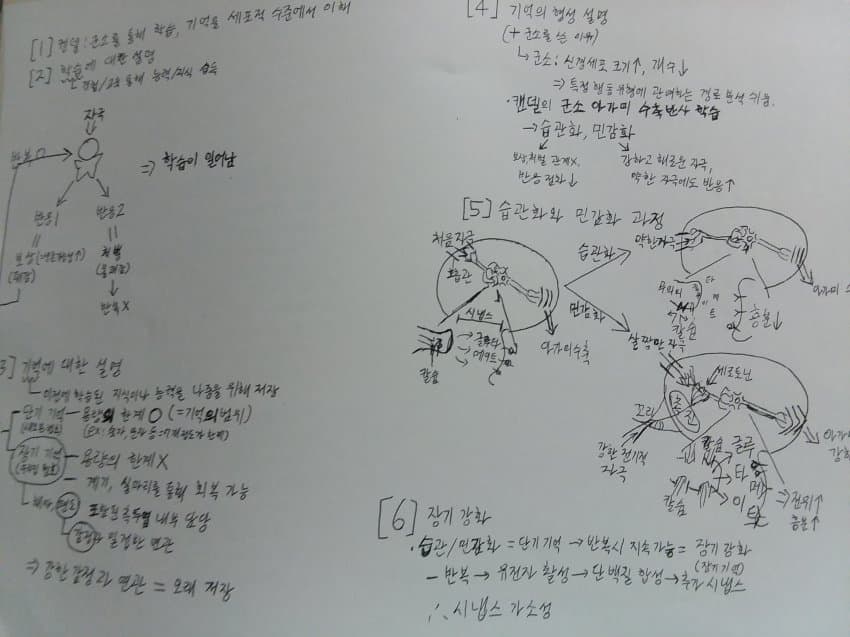 [1] 캔델: 군소를 통해 학습, 기억을 세포적 수준에서 이해
[2] 학습에 대한 설명
경험/교육 통해 능력/지식 습득
자극
반복 O
⇒ 학습이 일어남
반응1
반응2
보상
처벌
반복 X
3] 기억에 대한 설명
이전에 학습된 지식이나 능력을 나중을 위해 저장
단기 기억 - 용량의 한계 O (=기억의 범위)
장기 기억 - 용량의 한계 X
- 계기, 실마리를 통해 회복 가능
해마, 편도
내부 담당
감정과 밀접한 연관
⇒ 강한 감정과 연관 = 오래 저장
[4] 기억의 형성 설명
(+ 군소를 쓴 이유)
군소: 신경세포 크기↑, 개수↓
⇒ 특정 행동 유형에 관여하는 경로 분석 쉬움.
· 캔델의 군소 아가미 수축반사 학습
→ 습관화, 민감화
보상, 처벌 관계X.
반응 점차↓
강하고 해로운 자극,
약한 자극에도 반응↑
[5] 습관화와 민감화 과정
처음 자극
습관
시냅스
글루타메이트
칼슘
아가미 수축
습관화
민감화
약한 자극
칼슘
흥분↓
아가미 수
살짝만 자극
세로토닌
꼬리
강한 전기적
자극
칼슘
칼슘
글루타메이트
⇒ 전위↑
흥분↑
아가미
강
[6] 장기 강화
· 습관/민감화 = 단기기억 → 반복시 지속가능 = 장기 강화
(장기기억)
- 반복 → 유전자 활성 → 단백질 합성 → 추가 시냅스
∴ 시냅스 가소성